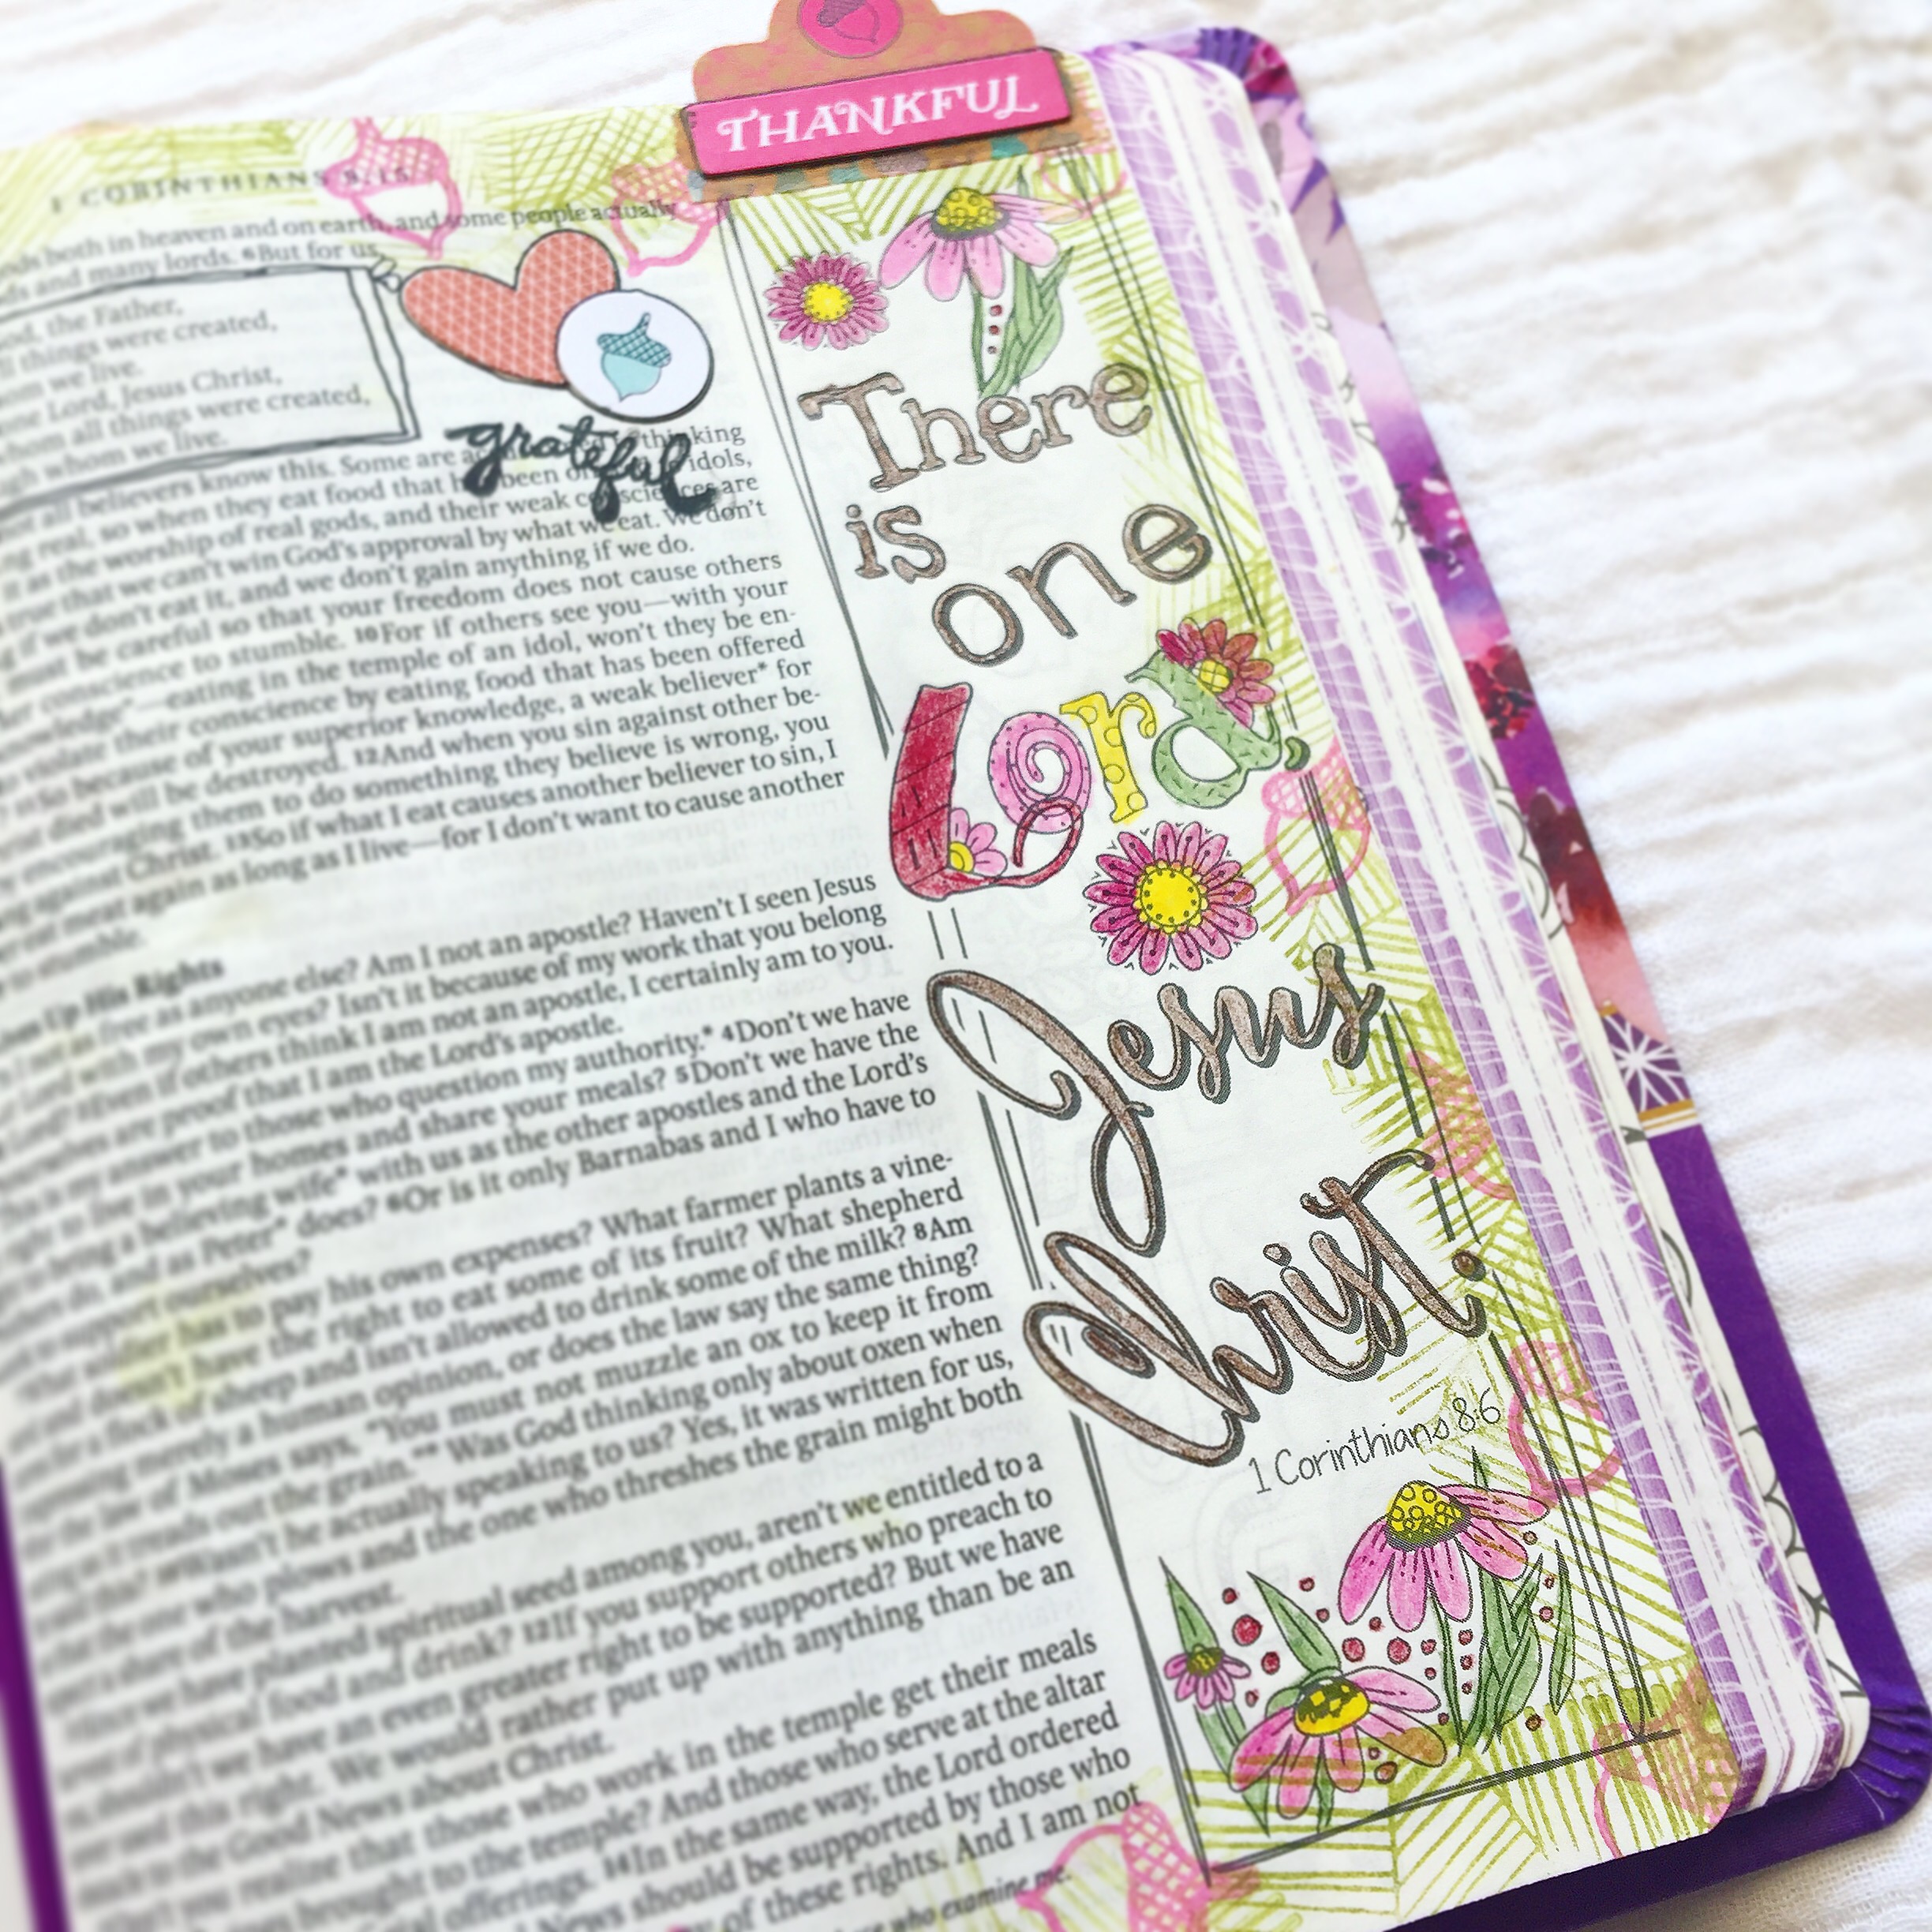 THANKFUL
1 CORINTHIANS 9:15
both in heaven and on earth, and some people actually
and many lords. 6But for us,
the Father,
things were created,
we live.
Lord, Jesus Christ,
whom all things were created,
whom we live.
grateful
all believers know this. Some are thinking
real, so when they eat food that been idols,
it as the worship of real gods, and their weak consciences are
true that we can't win God's approval by what we eat. We don't
if we don't eat it, and we don't gain anything if we do.
must be careful so that your freedom does not cause others
conscience to stumble. 10For if others see you—with your
—eating in the temple of an idol, won't they be en-
violate their conscience by eating food that has been offered
because of your superior knowledge, a weak believer* for
died will be destroyed. 12And when you sin against other be-
encouraging them to do something they believe is wrong, you
against Christ. 13So if what I eat causes another believer to sin, I
eat meat again as long as I live—for I don't want to cause another
stumble.
Up His Rights
free as anyone else? Am I not an apostle? Haven't I seen Jesus
with my own eyes? Isn't it because of my work that you belong
2Even if others think I am not an apostle, I certainly am to you.
are proof that I am the Lord's apostle.
is my answer to those who question my authority.* 4Don't we have
to live in your homes and share your meals? 5Don't we have the
bring a believing wife* with us as the other apostles and the Lord's
and as Peter* does? 6Or is it only Barnabas and I who have to
ourselves?
has to pay his own expenses? What farmer plants a vine-
have the right to eat some of its fruit? What shepherd
of sheep and isn't allowed to drink some of the milk? 8Am
merely a human opinion, or does the law say the same thing?
law of Moses says, "You must not muzzle an ox to keep it from
out the grain."* Was God thinking only about oxen when
Wasn't he actually speaking to us? Yes, it was written for us,
one who plows and the one who threshes the grain might both
share of the harvest.
we have planted spiritual seed among you, aren't we entitled to a
of physical food and drink? 12If you support others who preach to
have an even greater right to be supported? But we have
this right. We would rather put up with anything than be an
to the Good News about Christ.
realize that those who work in the temple get their meals
brought to the temple? And those who serve at the altar
offerings. 14In the same way, the Lord ordered
News should be supported by those who
of these rights. And I am not
who examine me.
There
is one
Lord,
Jesus
Christ.
1 Corinthians 8:6